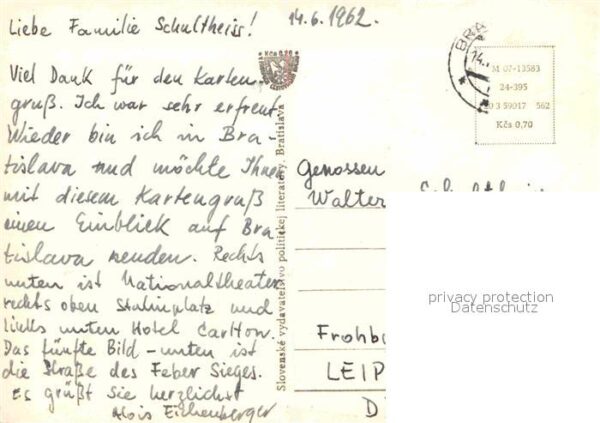 Liebe Familie Schultheiss! 14.6.1962.
Viel Dank für den Karten-
gruß. Ich war sehr erfreut.
Wieder bin ich in Bra-
tislava und möchte Ihnen
mit diesem Kartengruß
einen Einblick auf Bra
tislava senden. Rechts
unten ist Nationaltheater
rechts oben Stalinplatz und
links unten Hotel Carlton.
Das fünfte Bild - unten ist
die Straße des Feber Sieges.
Es grüßt Sie herzlichst
Alois Eichenberger
Kčs 0,20
Slovenské vydavateľstvo politickej literatúry, Bratislava
BRA
14.
M 07-13583
24-395
03 59017 562
Kčs 0,70
Genossen
Walter
Frohbu
LEIP
D
privacy protection
Datenschutz